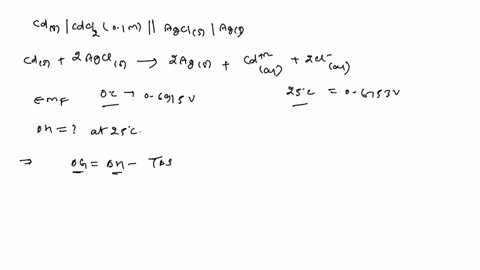 Cd(s) | CdCl2 (0.1M) || AgCl(s) | Ag(s)
Cd(s) + 2AgCl(s) → 2Ag(s) + Cd+2(aq) + 2Cl-(aq)
EMF 0°C → 0.6915V 25°C = 0.6753V
ΔH = ? at 25°C.
⇒ ΔG = ΔH - TΔS